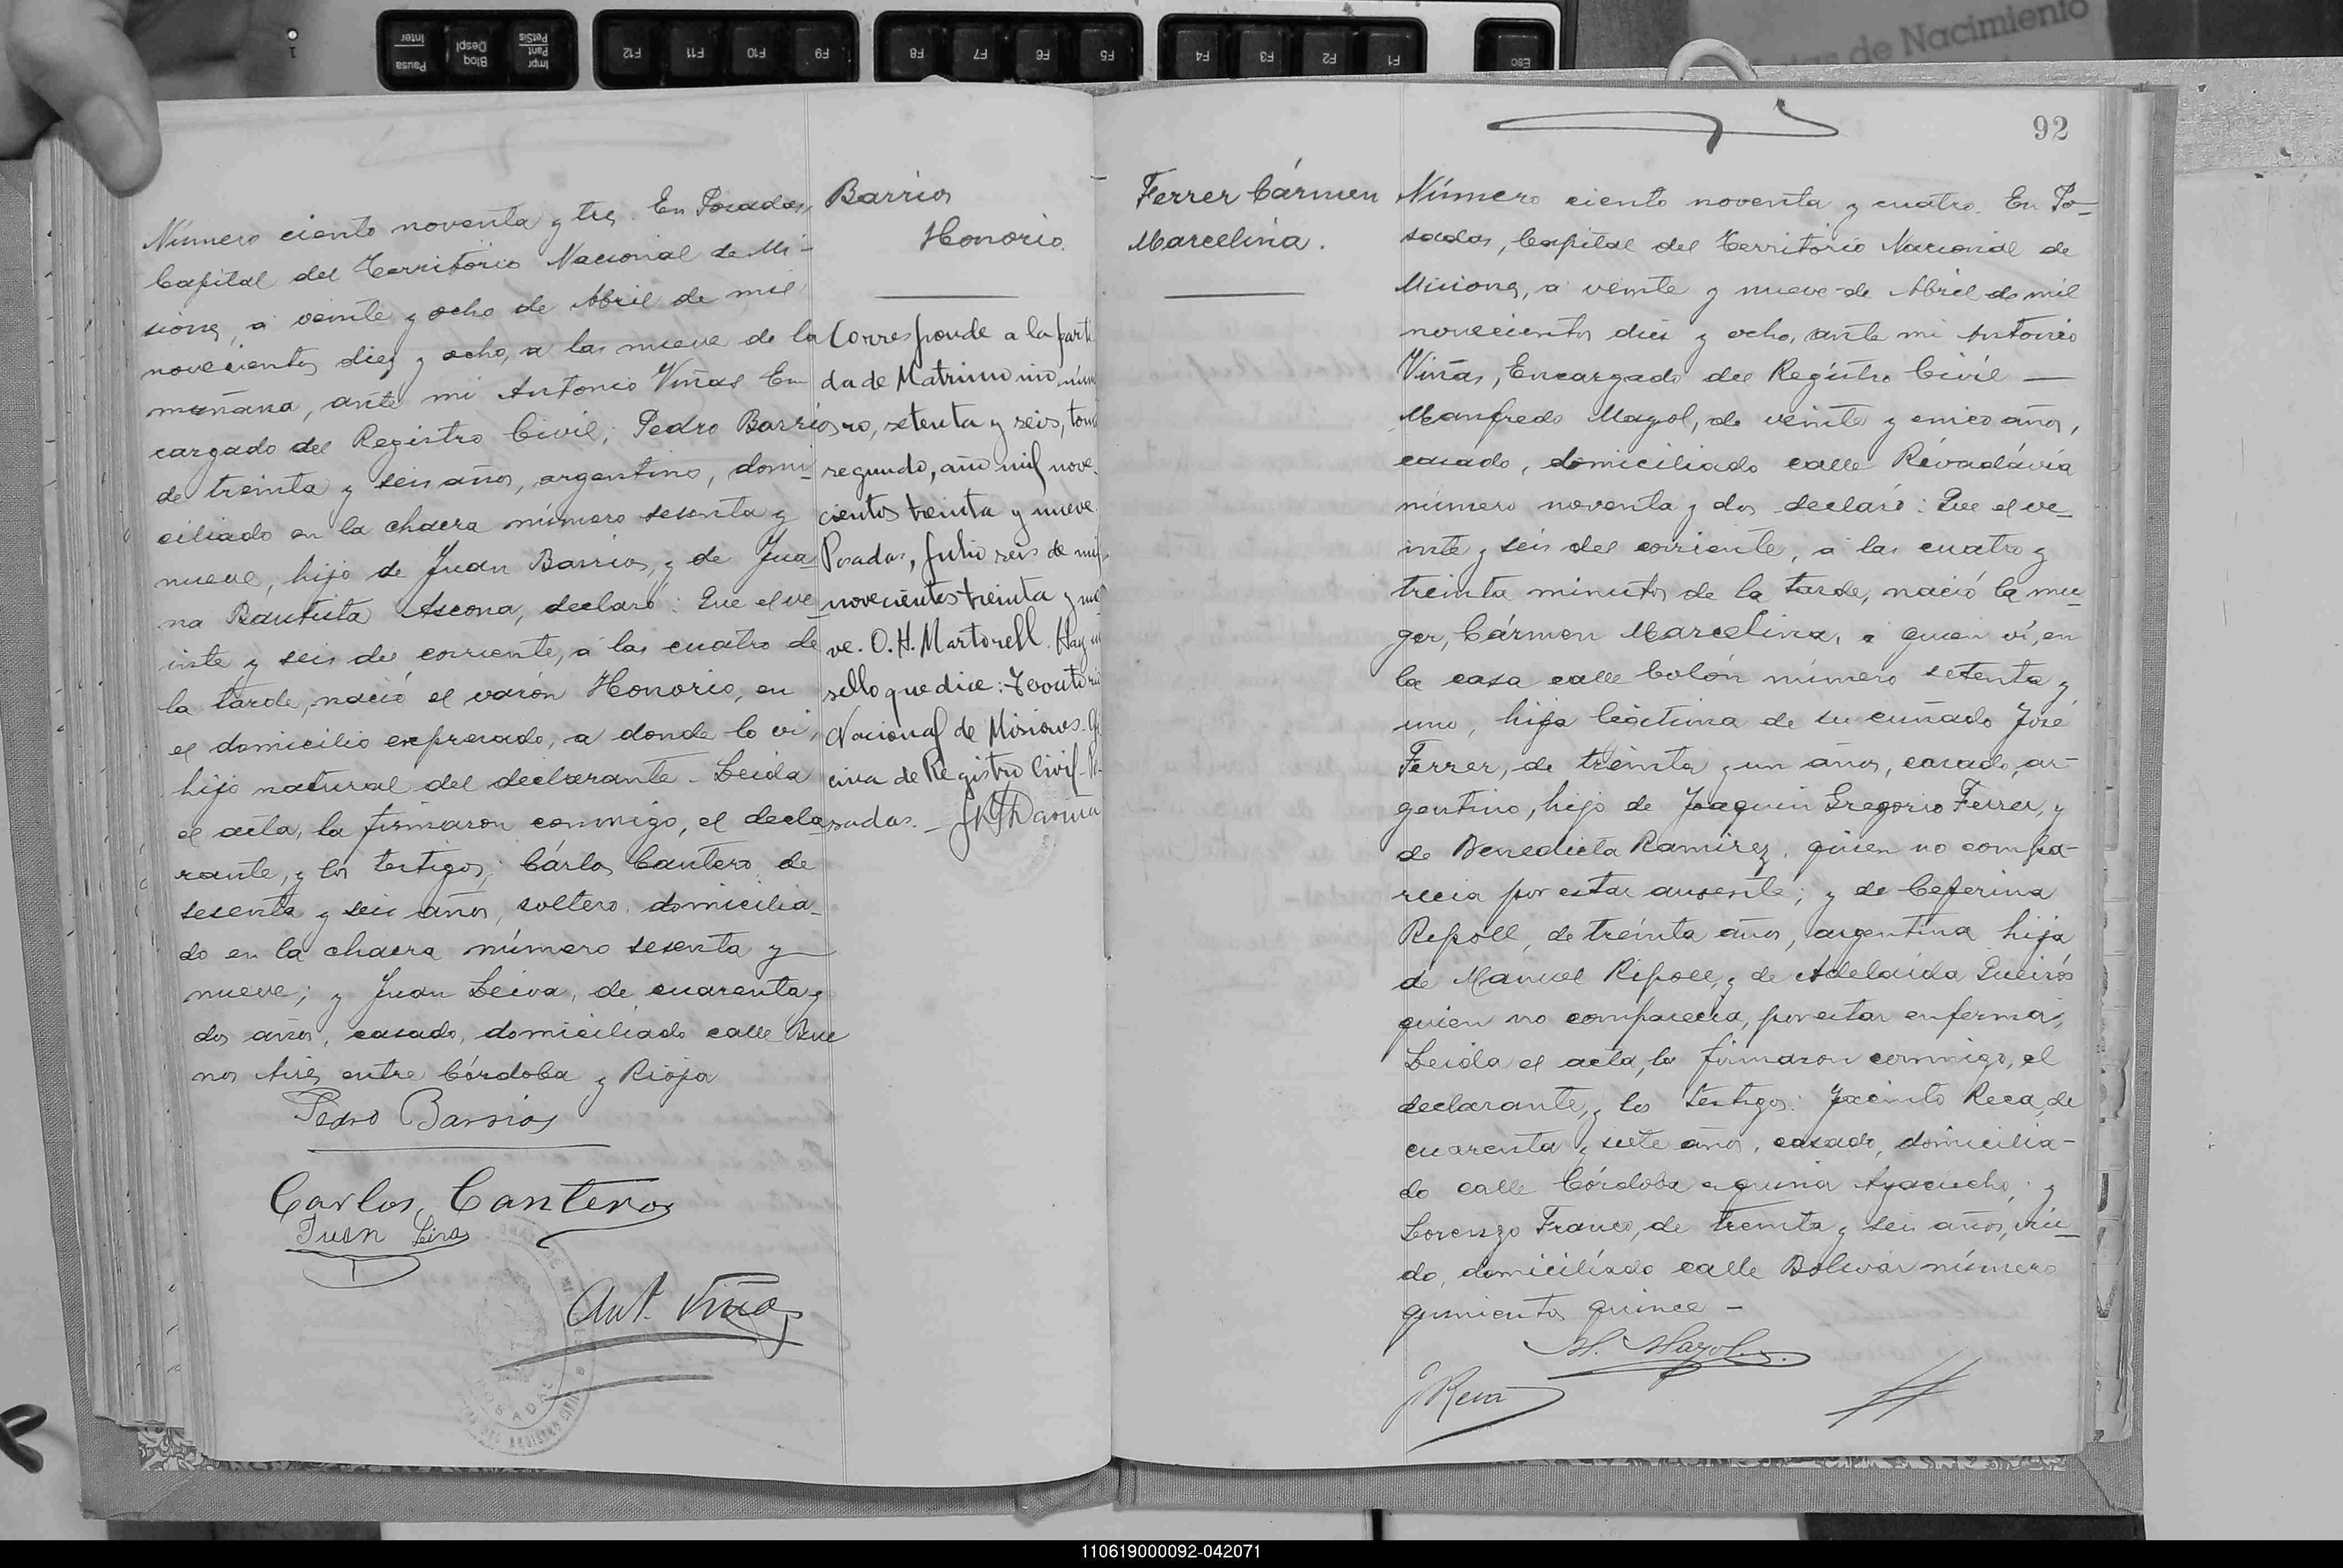 Número ciento noventa y tres. En Posadas,
Capital del Territorio Nacional de Mi-
siones, a veinte y ocho de Abril de mil
novecientos diez y ocho, a las nueve de la
mañana, ante mi Antonio Viñas En
cargado del Registro Civil; Pedro Barrios
de treinta y seis años, argentino, domi-
ciliado en la chacra número sesenta y
nueve, hijo de Juan Barrios, y de Jua-
na Bautista Ascona, declaró: Que el ve-
inte y seis de corriente, a las cuatro de
la tarde, nació el varón Honorio, en
el domicilio expresado, a donde lo vi,
hijo natural del declarante. Leida
el acta, la firmaron conmigo, el decla
rante, y los testigos; Cárlos Cantero, de
sesenta y seis años, soltero, domicilia-
do en la chacra número sesenta y
nueve; y Juan Leiva, de cuarenta y
dos años, casado, domiciliado calle Bue
nos Aires entre Córdoba y Rioja
Pedro Barrios
Carlos Canteros
Juan Leiva
Ant. Viñas
POSADAS
Barrios
Honorio.
Corresponde a la parti
da de Matrimonio núme
ro, setenta y seis, tomo
segundo, año mil nove-
cientos treinta y nueve.
Posadas, Julio seis de mil
novecientos treinta y nue
ve. O. H. Martorell. Hay un
sello que dice: Territorio
Nacional de Misiones. Ofi
cina de Registro Civil. Po-
sadas.
92
Ferrer Cármen
Marcelina.
Número ciento noventa y cuatro. En Po-
sadas, Capital del Territorio Nacional de
Misiones, a veinte y nueve de Abril de mil
novecientos diez y ocho, ante mi Antonio
Viñas, Encargado del Registro Civil —
Manfredo Mayol, de veinte y cinco años,
casado, domiciliado calle Rivadavia
número noventa y dos declaró: Que el ve-
inte y seis del corriente, a las cuatro y
treinta minutos de la tarde, nació la mu-
ger, Cármen Marcelina, a quien ví, en
la casa calle Colón número setenta y
uno, hija legitima de su cuñado José
Ferrer, de treinta y un años, casado, ar-
gentino, hijo de Joaquin Gregorio Ferrer, y
de Benedicta Ramirez, quien no compa-
recia por estar ausente; y de Ceferina
Repoll, de treinta años, argentina hija
de Manuel Ripoll, y de Adelaida Queirós
quien no comparecia, por estar enferma,
Leida el acta, la firmaron conmigo, el
declarante, y los testigos: Jacinto Reca, de
cuarenta y siete años, casado, domicilia-
do calle Córdoba esquina Ayacucho; y
Lorenzo Franco, de treinta y seis años, viu-
do, domiciliado calle Bolivar número
quinientos quince —
M. Mayol.
J Reca
de Nacimiento
Esc
F1
F2
F3
F4
F5
F6
F7
F8
F9
F10
F11
F12
Impr
Pant
PetSis
Bloq
Despl
Pausa
Inter
110619000092-042071